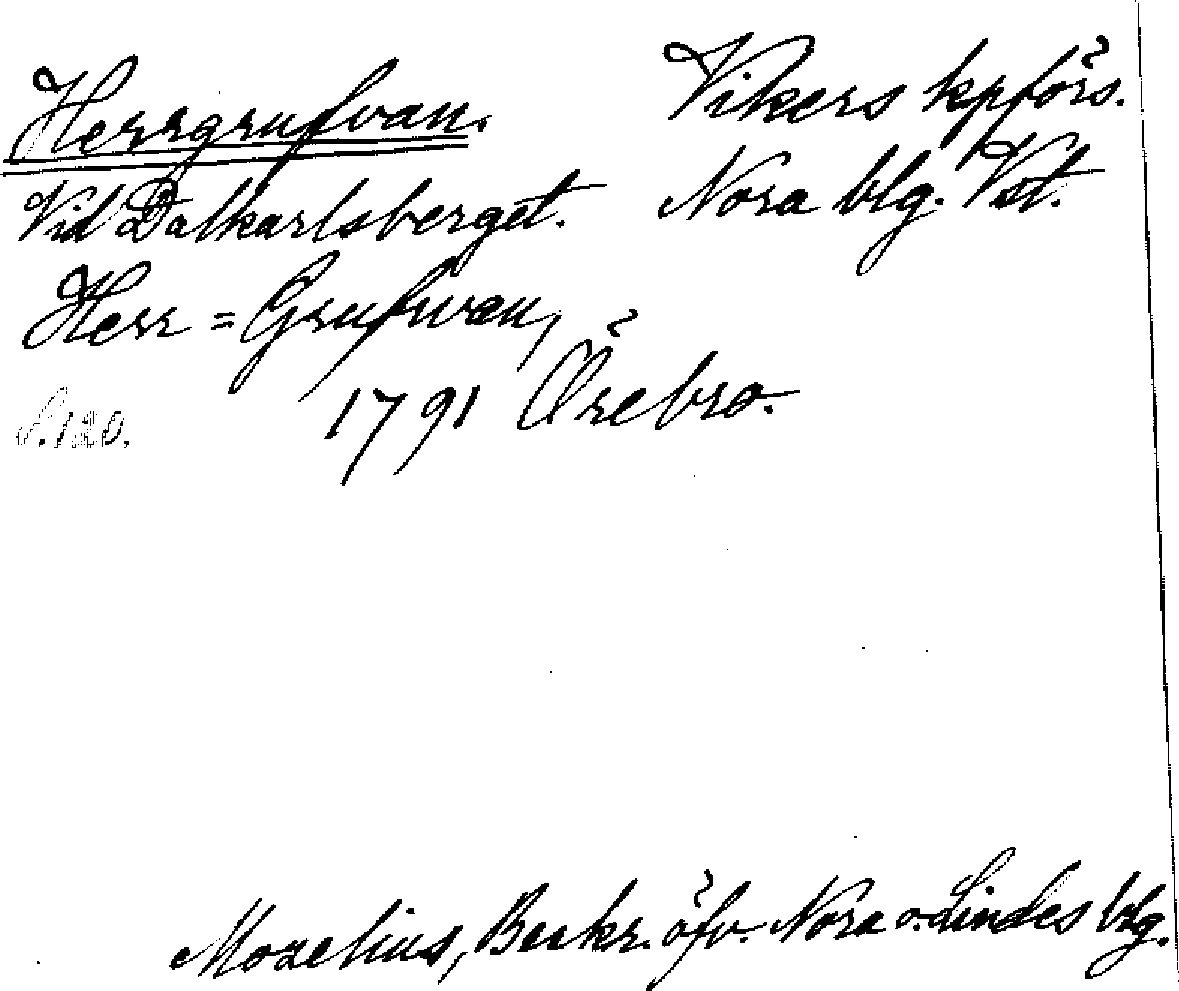 Herrgrufvan. Vikers kpförs.
Vid Dalkarlsberget. Nora blg. Vst.
Herr=Grufwan,
S.120. 1791 Örebro.
Mozelius, Beskr. öfv. Nora o. Lindes blg.